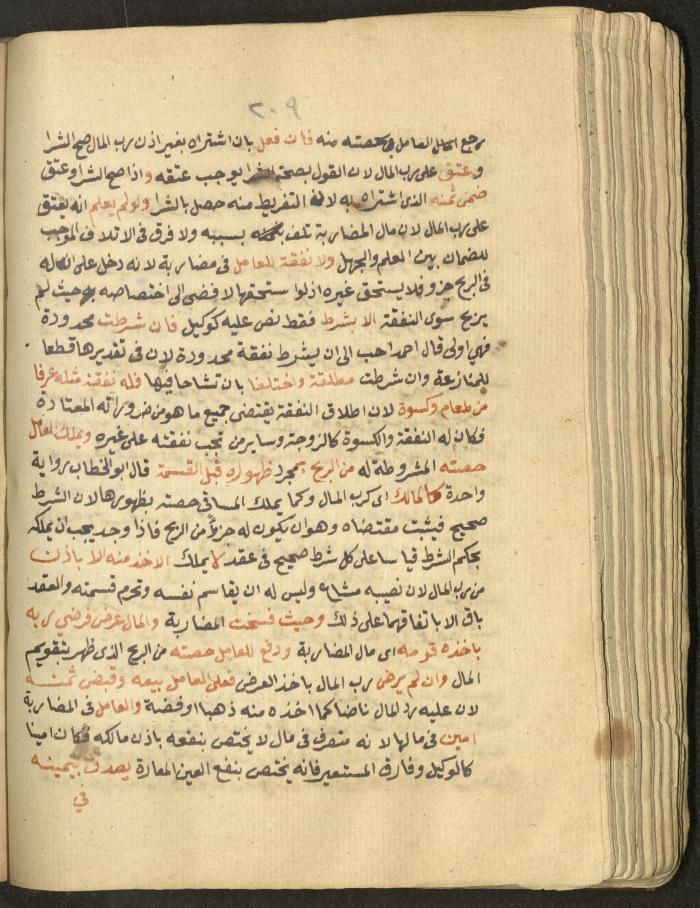 ٣٠٩
رجع العامل في حصته منه فان فعل بان اشتراه بغير اذن رب المال صح الشرا
وعتق على رب المال لان القول بصحة الشرا يوجب عتقه واذا صح الشرا وعتق
ضمن ثمنه الذي اشتراه به لانه التفريط منه حصل بالشرا ولو لم يعلم انه يعتق
على رب المال لان مال المضاربة تلف بسببه ولا فرق في الاتلاف الموجب
للضمان بين العلم والجهل ولا نفقة للعامل في مضاربة لانه دخل على ان له
في الربح جزو فلا يستحق غيره اذ لو استحقها لافضى الى اختصاصه به حيث لم
يربح سوى النفقة الا بشرط فقط نص عليه كوكيل فان شرطت محدودة
فهي اولى قال احمد احب الى ان يشرط نفقة محدودة لان في تقديرها قطعا
للمنازعة وان شرطت مطلقة واختلفا بان تشاحا فيها فله نفقة مثله عرفا
من طعام وكسوة لان اطلاق النفقة يقتضي جميع ما هو من ضروراته المعتادة
فكان له النفقة والكسوة كالزوجة وساير من تجب نفقته على غيره ويملك العامل
حصته المشروطة له من الربح بمجرد ظهوره قبل القسمة قال ابو الخطاب رواية
واحدة كالمالك اي كرب المال وكما يملك المساقي حصته بظهورها لان الشرط
صحيح فيثبت مقتضاه وهو ان يكون له جزءًا من الربح فاذا وجد يجب ان يملكه
بحكم الشرط قياسا على كل شرط صحيح في عقد لا يملك الاخذ منه الا باذن
من رب المال لان نصيبه مشاع وليس له ان يقاسم نفسه وتحرم قسمته والعقد
باق الا باتفاقهما على ذلك وحيث فسخت المضاربة والمال عرض فرضي ربه
باخذه قومه اي مال المضاربة ودفع للعامل حصته من الربح الذي ظهر بتقويم
المال وان لم يرض رب المال باخذ العرض فعلى العامل بيعه وقبض ثمنه
لان عليه رد المال ناضا كما اخذه منه ذهبا او فضة والعامل في المضاربة
امين في مالها لانه متصرف في مال لا يختص بنفعه باذن مالكه فكان امينا
كالوكيل وفارق المستعير فانه يختص بنفع العين المعارة يصدق بيمينه
في